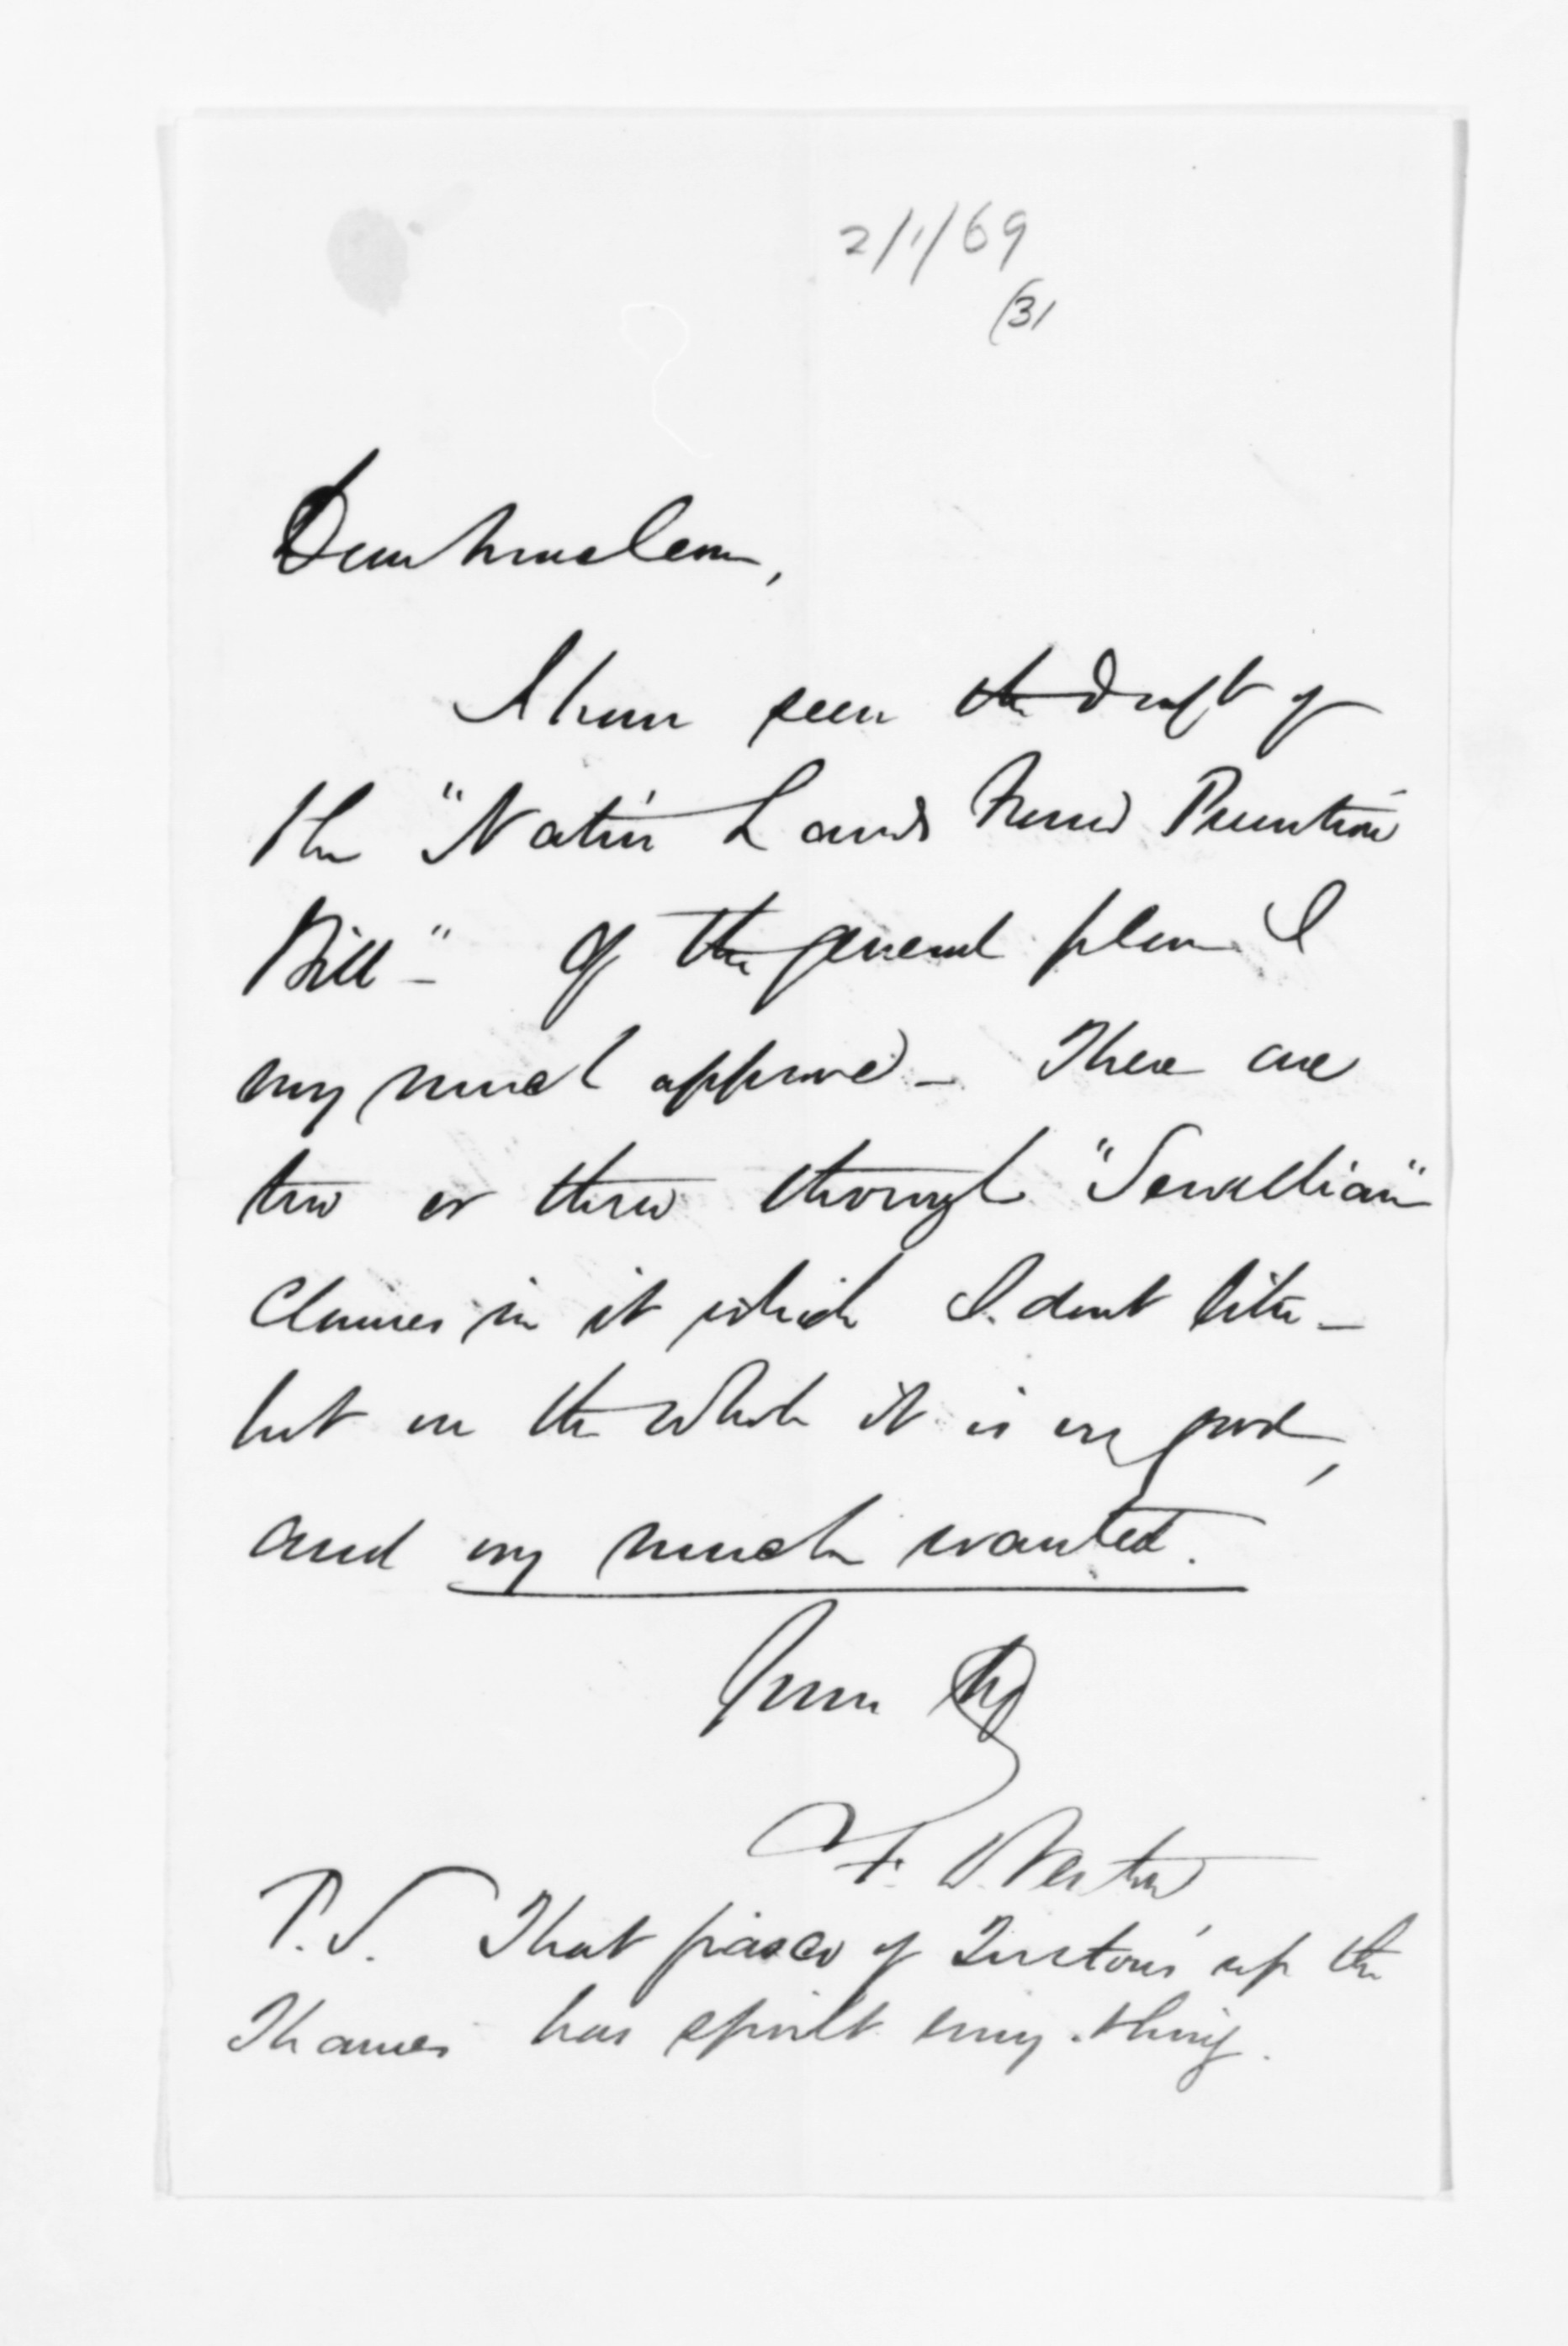 2/1/69
(31
Dear Maclean,
I have seen the draft of
the "Native Lands Fraud Prevention
Bill" - Of the general plan I
very much approve - There are
two or three thorough "Sewellian"
Clauses in it which I dont like -
but on the whole it is very good,
and very much wanted.
Yours
F. W.
P.S. That fiasco of up the
Thames has spoilt every thing.